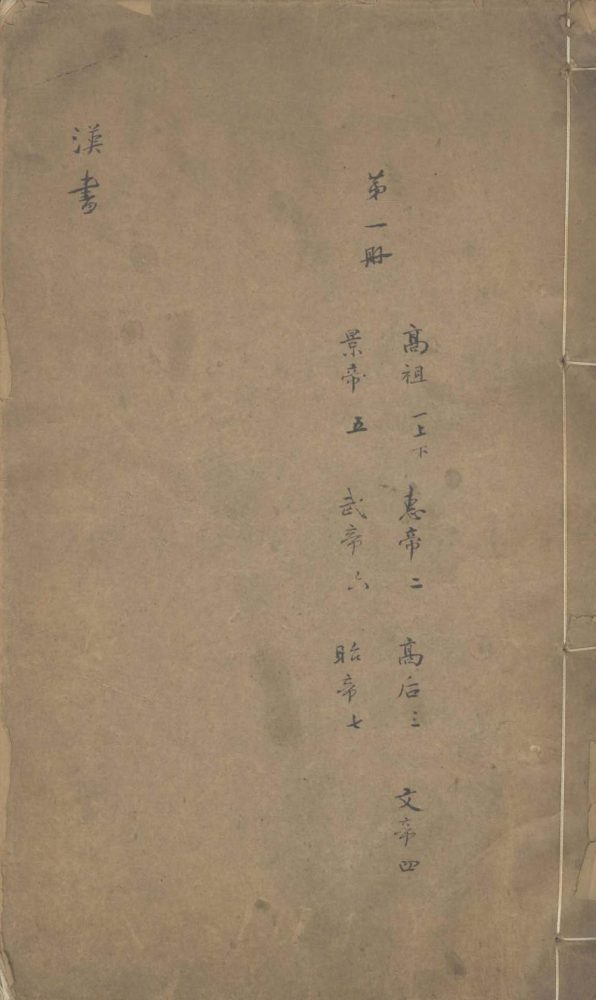 漢書
第一冊
高祖 一上下 惠帝 二 高后 三 文帝 四
景帝 五 武帝 六 昭帝 七